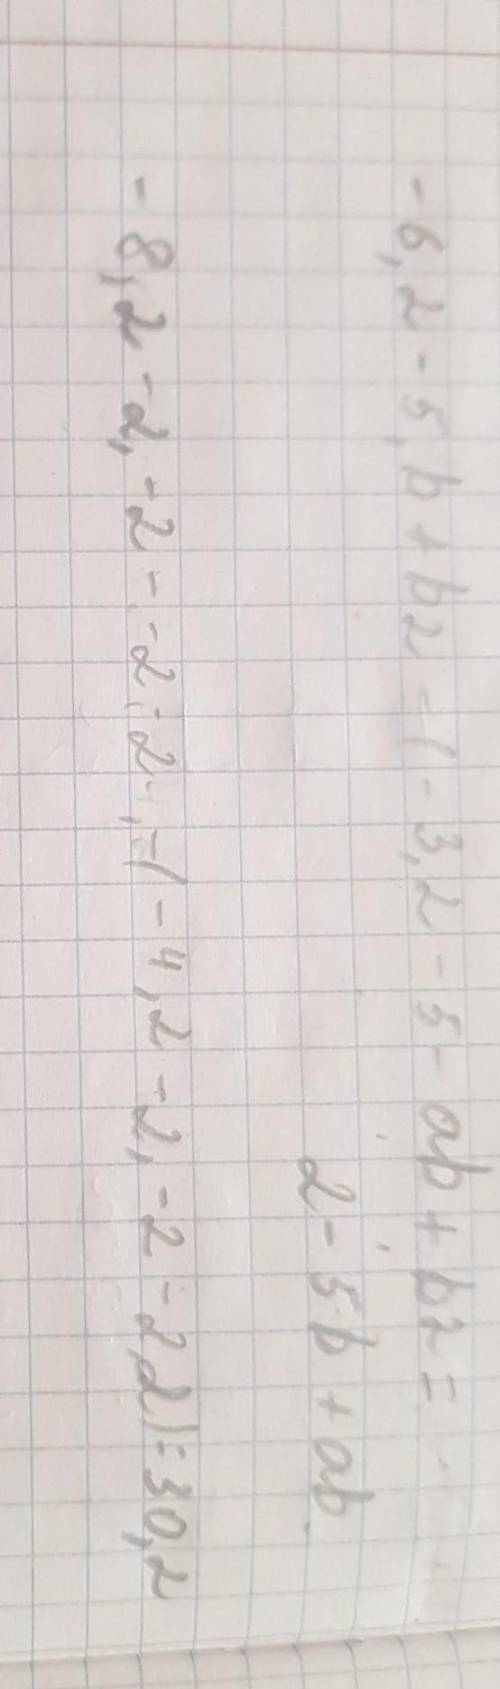 -6,2-5,b+b2-(-3,2-5-ab+b2=
2-5b+ab
-8,2-2,-2--2:2,-(-4,2-2,-2-2,2)=30,2